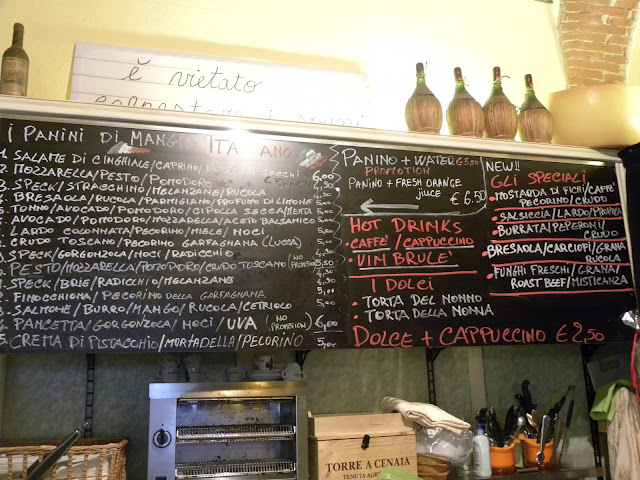 è vietato
I PANINI DI
ITA ANO
SALAME DI CINGHIALE/CAPRINO/ SECCHI
2. MOZZARELLA/PESTO/POMODORO 6,00
3. SPECK/STRACCHINO/MELANZANE/RUCOLA
BRESAOLA/RUCOLA/PARMIGIANO/PROFUMO DI LIMONE
TONNO/AVOCADO/POMODORO/CIPOLLA SECCA/MENTA
AVOCADO/POMODORO/MOZZARELLA/ACETO BALSAMICO
LARDO COLONNATA/PECORINO/MIELE/NOCI
CRUDO TOSCANO/PECORINO GARFAGNANA (LUCCA)
SPECK/GORGONZOLA/NOCI/RADICCHIO
PESTO/MOZZARELLA/POMODORO/CRUDO TOSCANO (NO PROMOTION) 5,50
SPECK/BRIE/RADICCHIO/MELANZANE
FINOCCHIONA/PECORINO DELLA GARFAGNANA
SALMONE/BURRO/MANGO/RUCOLA/CETRIOLO 5,00
PANCETTA/GORGONZOLA/NOCI/UVA (NO PROMOTION) 6,00
5. CREMA DI PISTACCHIO/MORTADELLA/PECORINO
PANINO + WATER €5,80
PROMOTION
PANINO + FRESH ORANGE
JIUCE € 6.50
HOT DRINKS
CAFFE'/CAPPUCCINO
VIM BRULE'
I DOLCI
• TORTA DEL NONNO
• TORTA DELLA NONNA
DOLCE + CAPPUCCINO € 2,50
NEW!!
GLI SPECIALI
• MOSTARDA DI FICHI/CAFFE'
PECORINO/CRUDO
• SALSICCIA/LARDO/
• BURRATA/PEPERONI
CRUDO
• BRESAOLA/CARCIOFI/GRANA
RUCOLA
• FUNGHI FRESCHI/GRANA/
ROAST BEEF/MISTICANZA
TORRE A CENAIA
TENUTA